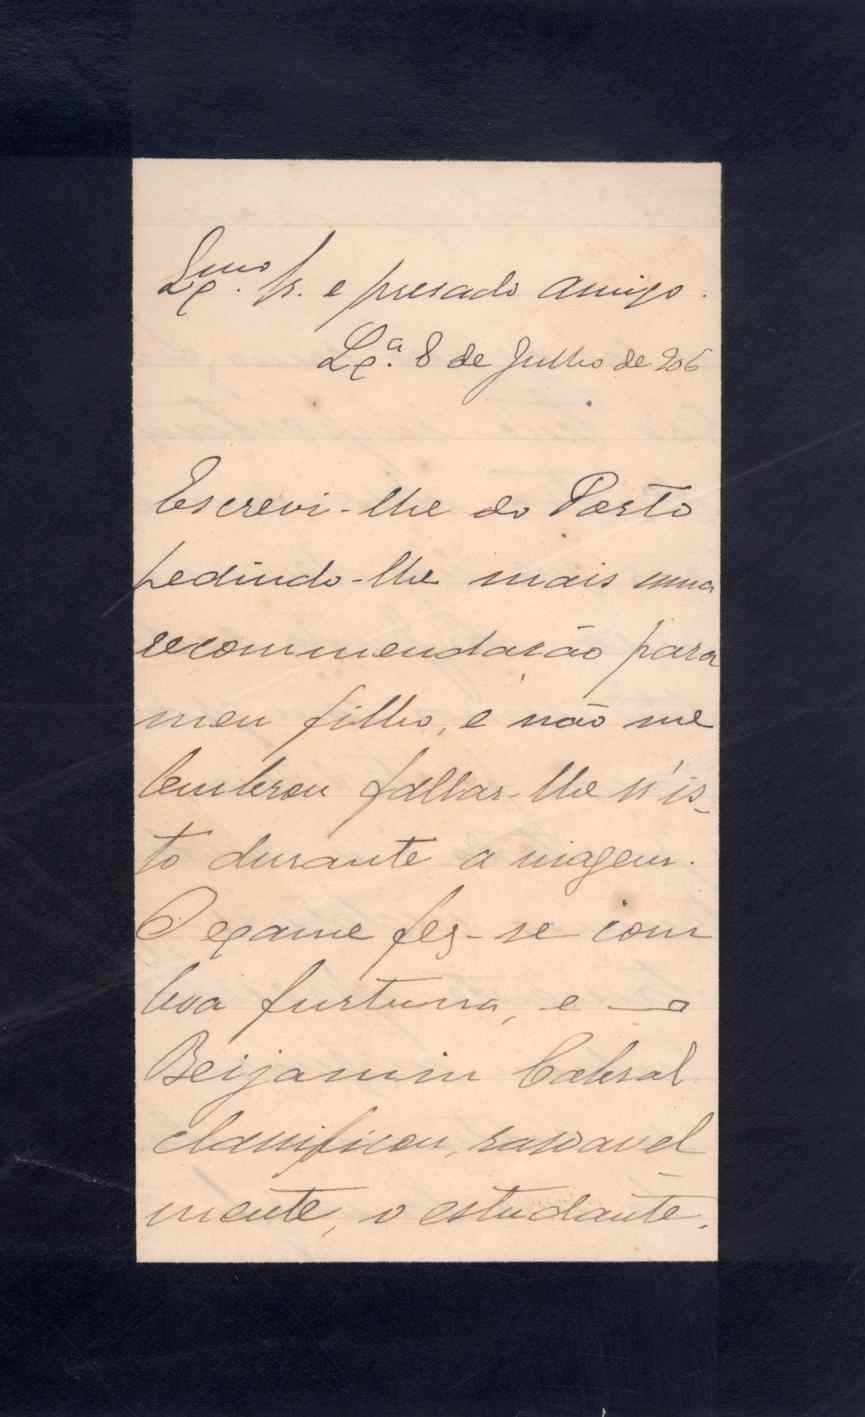 Exmo. Sr. e presado amigo.
Lxa. 8 de Julho de 906
Escrevi-lhe do Porto
pedindo-lhe mais uma
recommendação para
meu filho, e não me
lembrou fallar-lhe n'is-
to durante a viagem.
O exame fez-se com
boa furtuna, e o
Beijamin Cabral
classificou, rasoavel
mente, o estudante.